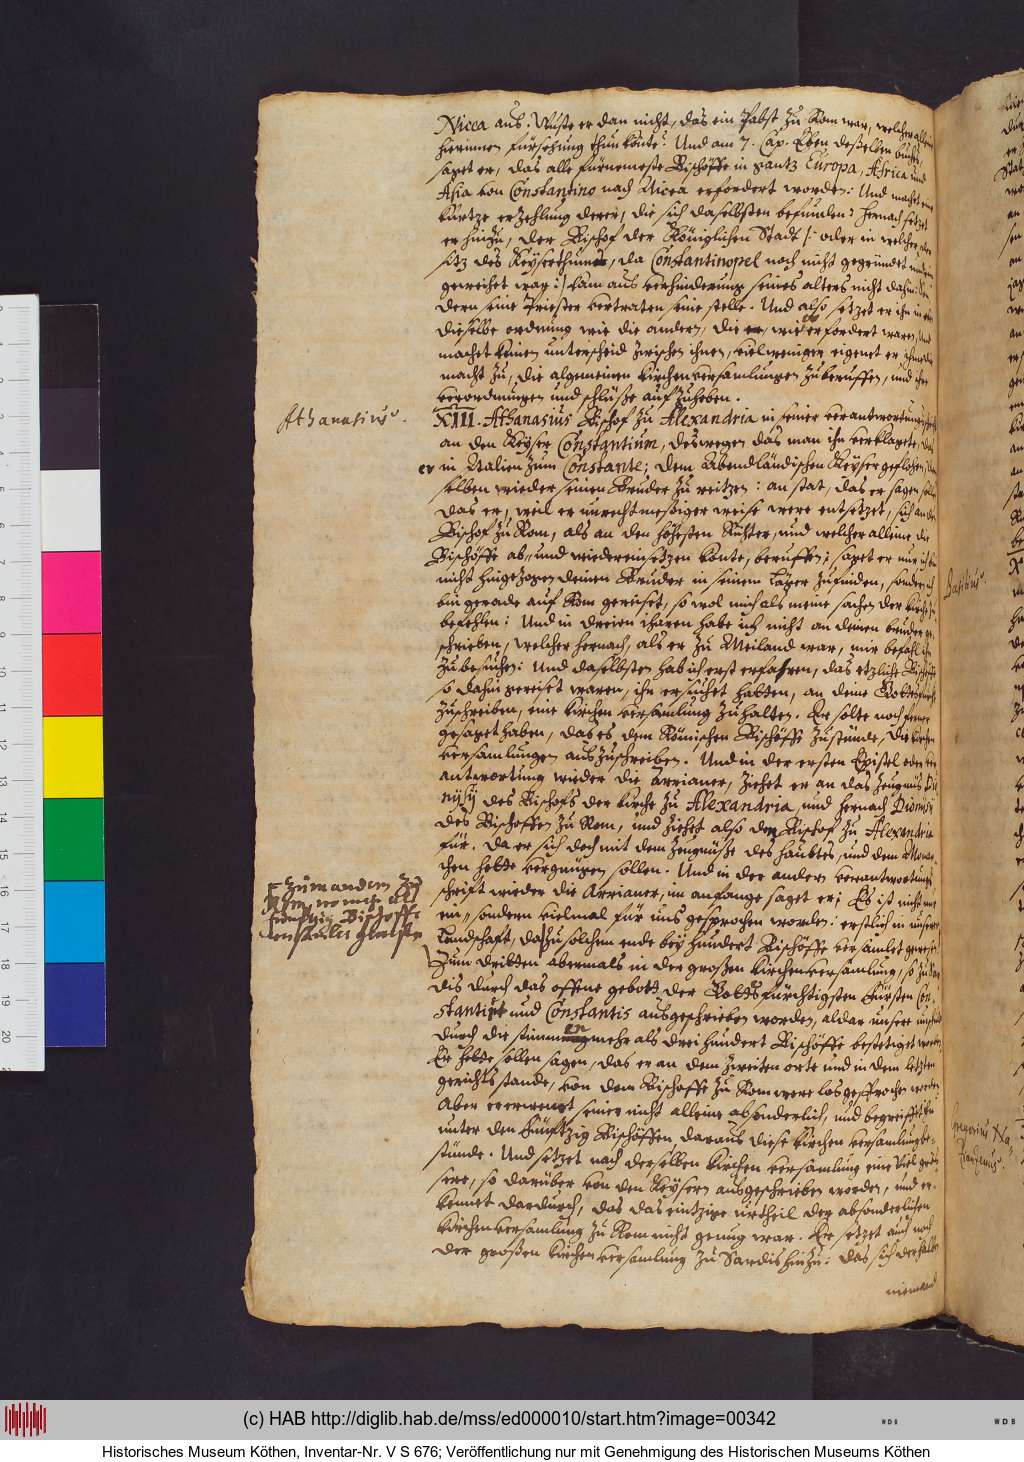 Nicea aus. Wuste er dan nicht, das ein Pabst zu Rom war, welcher allein
hierinnen fürsehung thun könte? Und am 7. Cap. Eben desselben buchs,
saget er, das alle fürnemeste Bischöffe in gantz Europa, Africa und
Asia von Constantino nach Nicea erfordert worden: Und machet eine
kurtze erzehlung derer, die sich daselbsten befunden: hernach setzet
er hinzu, der Bischof der Königlichen Stadt /: oder in welcher der
sitz des Keyserthums, da Constantinopel noch nicht gegründet und
geweihet war :/ kam aus verhinderung seines alters nicht dahin: Son
dern seine Priester vertraten seine stelle. Und also setzet er ihn in
dieselbe ordnung wie die andern, die er, wie erfordert waren, Und
machet keinen unterscheid zwischen ihnen, vielweniger eignet er ihme die
macht zu, die algemeinen kirchenversamlungen zuberuffen, und ihre
verordnungen und schlüsse aufzuheben.
Athanasius.
XIII. Athanasius Bischof zu Alexandria in seiner verantwortungsschrift
an den Keyser Constantium, deswegen das man ihn verklagete, das
er in Italien zum Constante, dem Abendländischen Keyser geflohen,
selben wieder seinen Bruder zu reitzen: an stat, das er sagen solte
das er, weil er unrechtmessiger weise were entsetzet, sich an den
Bischof zu Rom, als an den höhesten Richter, und welcher alleine die
Bischöffe ab- und wiedereinsetzen konte, beruffen; saget er nur, ich bin
nicht hingezogen deinen Bruder in seinem läger zufinden, sondern ich
bin gerade auf Rom gereiset, so wol mich als meine sachen der kirchen zu
befehlen: Und in dreien iharen habe ich nicht an deinen bruder ge
schrieben, welcher hernach, als er zu Meiland war, mir befahl ihn
zubesuchen: Und daselbsten hab ich erst erfahren, das etzliche Bischöffe
so dahin gereiset waren, ihn ersuchet hatten, an deine Gottes
zuschreiben, eine kirchen versamlung zuhalten. Er solte noch ferner
gesaget haben, das es dem Römischen Bischöffe zustünde, die kirchen
versamlungen auszuschreiben. Und in der ersten Epistel oder ver
antwortung wieder die Arrianer, ziehet er an das Zeugnus Dio
nysij des Bischofs der kirche zu Alexandria, und hernach Dionysij
des Bischoffen zu Rom, und ziehet also den Bischof zu Alexandria
für. Da er sich doch mit dem Zeugnüsse des haubtes, und dem Monar
chen hette vergnügen sollen. Und in der andern verantwortungs
schrift wieder die Arrianer, im anfange saget er; Es ist nicht nur
ein- sondern vielmal für uns gesprochen worden: erstlich in unserer
landschaft, da zu solchem ende bey hundert Bischöffe versamlet gewesen
zum andern zu
Rom, wo mehr als
funfzig Bischoffe
Zum dritten abermals in der grossen kirchenversamlung, so zu Sar
dis durch das offene gebott der Gottsfürchtigsten Fürsten Con-
stantij und Constantis ausgeschrieben worden, aldar unsere unschuld
durch die stimmen mehr als drei hundert Bischöffe bestetiget worden
Er hette sollen sagen, das er an dem zweiten orte und in dem letzten
gerichtsstande, von dem Bischoffe zu Rom were losgesprochen worden
Aber er erwenet seiner nicht alleine absonderlich, und begreiffet ihn
unter den Fünfftzig Bischöffen, daraus diese kirchen versamlung be-
stünde. Und setzet nach derselben kirchen versamlung eine viel grös
sere, so darüber von den Keysern ausgeschrieben worden, und er-
kennet dardurch, das das eintzige urtheil der absonderlichen
kirchenversamlung zu Rom nicht genug war. Er setzet auch noch
der grossen kirchenversamlung zu Sardis hinzu: das sich derhalben
niemand
Basilius.
(c) HAB http://diglib.hab.de/mss/ed000010/start.htm?image=00342
Historisches Museum Köthen, Inventar-Nr. V S 676; Veröffentlichung nur mit Genehmigung des Historischen Museums Köthen